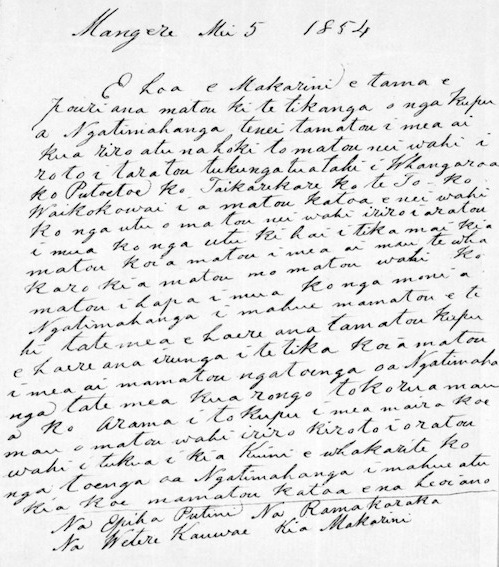 Mangere Mei 5 1854
E hoa e Makarini e tama e
pouri ana matou ki te tikanga o nga kupu
a Ngatimahanga tenei tamatou i mea ai
kua riro atu na hoki to matou nei wahi i
roto i taratou tukunga tuatahi i Whangaroa
ko Putoetoe ko Taikarikare ko te To - ko
Waikokowai i a matou katoa e nei wahi
ko nga utu o ma tou nei wahi iriro i aratou
i mua ko nga utu ki hai i tika mai kia
matou koia matou i mea ai mau te wha
karo kia matou mo matou wahi ko
matou i hapa i mua ko nga moni a
Ngatimahanga i mahue mamatou e ti
hi tate mea e haere ana tamatou kupu
e haere ana irunga i te tika koia matou
i mea ai mamatou nga toenga oa Ngatimaha
nga tate mea kua rongo tokorua mau
a ko Arama i to kupu i mea maira koe
mau o matou wahi iriro kiroto i oratou
wahi i tukua i kia Kumi e whakarite ko
nga toenga oa Ngatimahanga i mahue atu
kia koe mamatou katoa ena
Na Epiha Putini Na Ramakaraka
Na Wetere Kauwae Kia Makarini